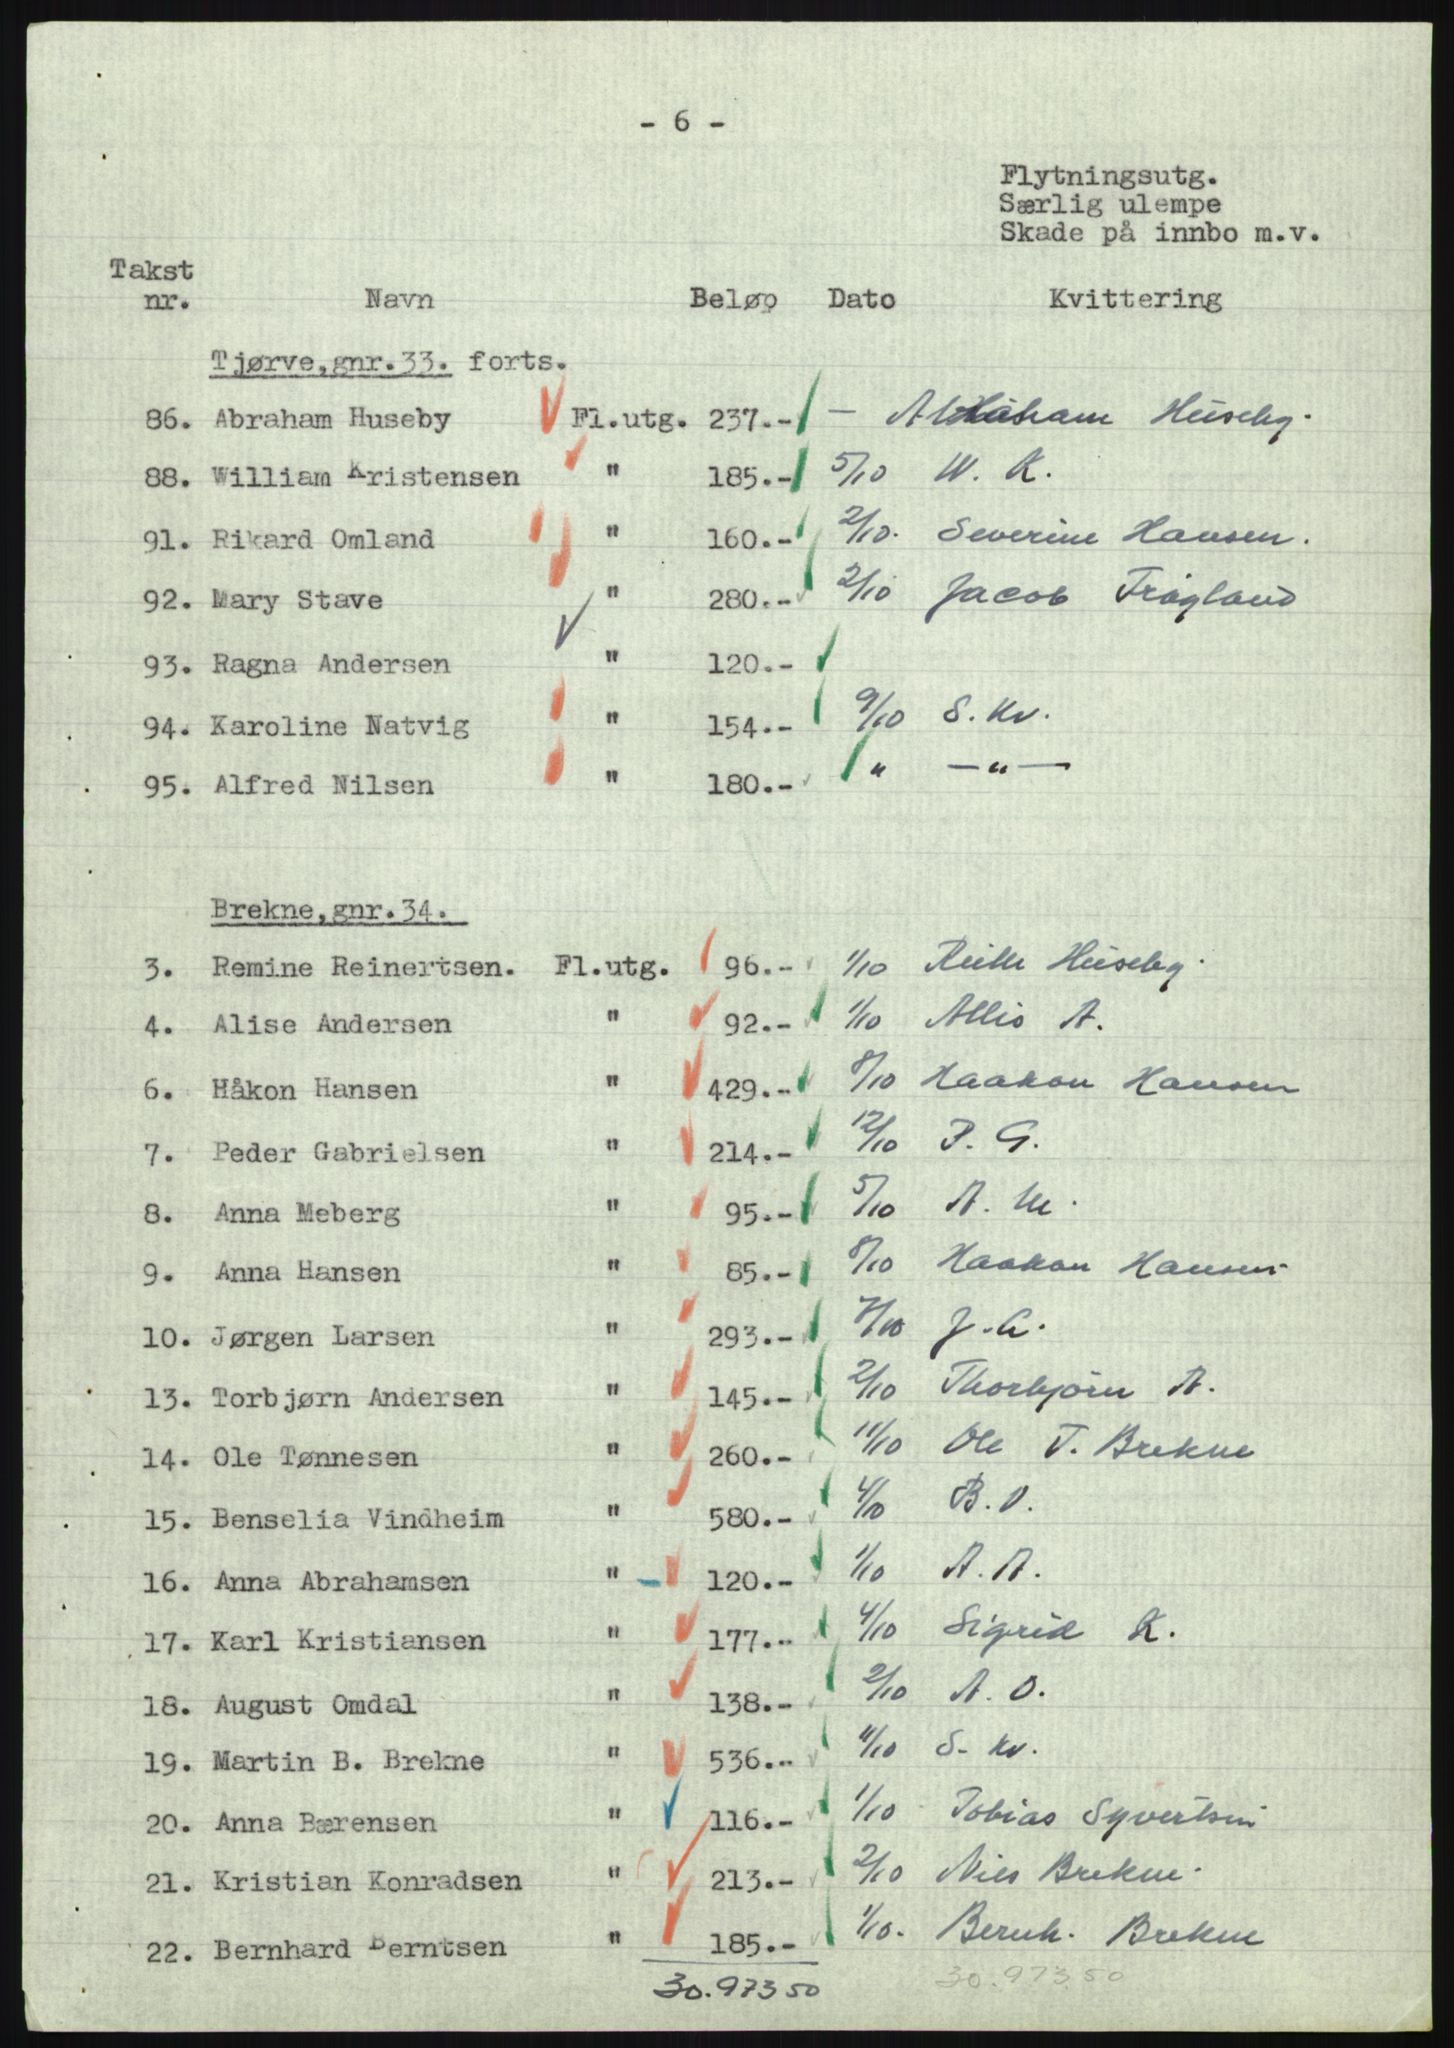 - 6 -
Flytningsutg.
Særlig ulempe
Skade på innbo m.v.
Takst
nr. Navn Beløp Dato Kvittering
Tjørve,gnr.33. forts.
86. Abraham Huseby Fl.utg. 237.- — Abraham Huseby.
88. William Kristensen " 185.- 5/10 W. K.
91. Rikard Omland " 160.- 2/10. Severine Hansen.
92. Mary Stave " 280.- 2/10 Jacob Trågland
93. Ragna Andersen " 120.-
94. Karoline Natvig " 154.- 9/10 S. Kv.
95. Alfred Nilsen " 180.- " —"—
Brekne,gnr.34.
3. Remine Reinertsen. Fl.utg. 96.- 1/10 Huseby.
4. Alise Andersen " 92.- 1/10 Allis A.
6. Håkon Hansen " 429.- 8/10 Haakon Hansen
7. Peder Gabrielsen " 214.- 12/10 P. G.
8. Anna Meberg " 95.- 5/10 A. M.
9. Anna Hansen " 85.- 8/10 Haakon Hansen
10. Jørgen Larsen " 293.- 7/10 J.
13. Torbjørn Andersen " 145.- 2/10 Thorbjörn A.
14. Ole Tønnesen " 260.- 11/10 Ole T. Brekne
15. Benselia Vindheim " 580.- 4/10 B. V.
16. Anna Abrahamsen " 120.- 1/10 A. A.
17. Karl Kristiansen " 177.- 4/10 Sigrid K.
18. August Omdal " 138.- 2/10 A. O.
19. Martin B. Brekne " 536.- 11/10 S. Kv.
20. Anna Bærensen " 116.- 1/10 Tobias Syvertsen
21. Kristian Konradsen " 213.- 2/10 Nils Brekne.
22. Bernhard Berntsen " 185.- 1/10. Bernh. Brekne
30.973 50 30.973 50